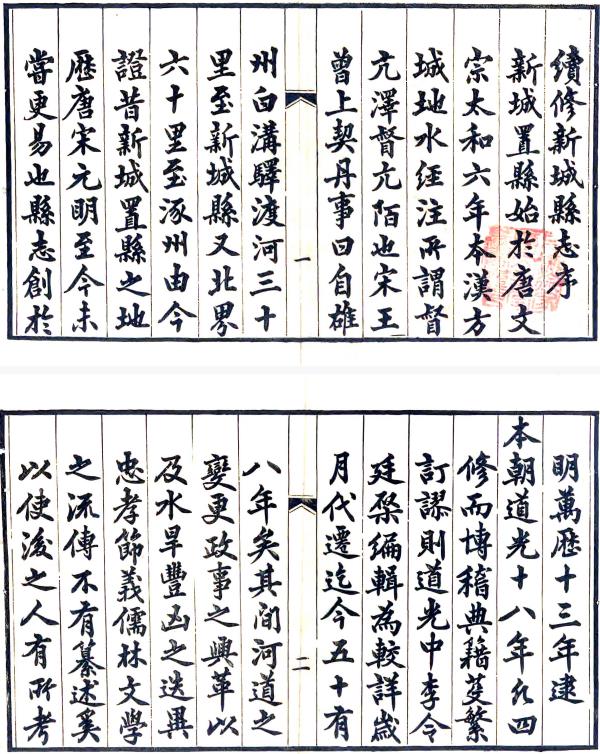 續修新城縣志序
新城置縣始於唐文
宗太和六年本漢方
城地水經注所謂督
亢澤督亢陌也宋王
曾上契丹事曰自雄
一
州白溝驛渡河三十
里至新城縣又北界
六十里至涿州由今
證昔新城置縣之地
歷唐宋元明至今未
嘗更易也縣志創於
明萬歷十三年逮
本朝道光十八年凡四
修而博稽典籍芟繁
訂謬則道光中李令
廷棨編輯為較詳歲
月代遷迄今五十有
二
八年矣其間河道之
變更政事之興革以
及水旱豐凶之迭異
忠孝節義儒林文學
之流傳不有纂述奚
以使後之人有所考